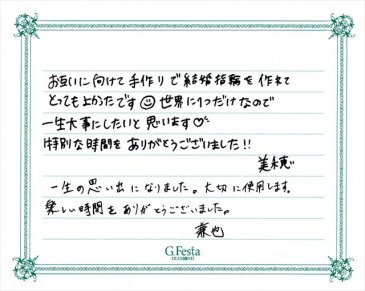 お互いに向けて手作りで結婚指輪を作れて
とってもよかったです☺世界に1つだけなので
一生大事にしたいと思います♡
特別な時間をありがとうございました!!
美穂
一生の思い出になりました。大切に使用します。
楽しい時間をありがとうございました。
兼也
G.Festa
DIAMOND